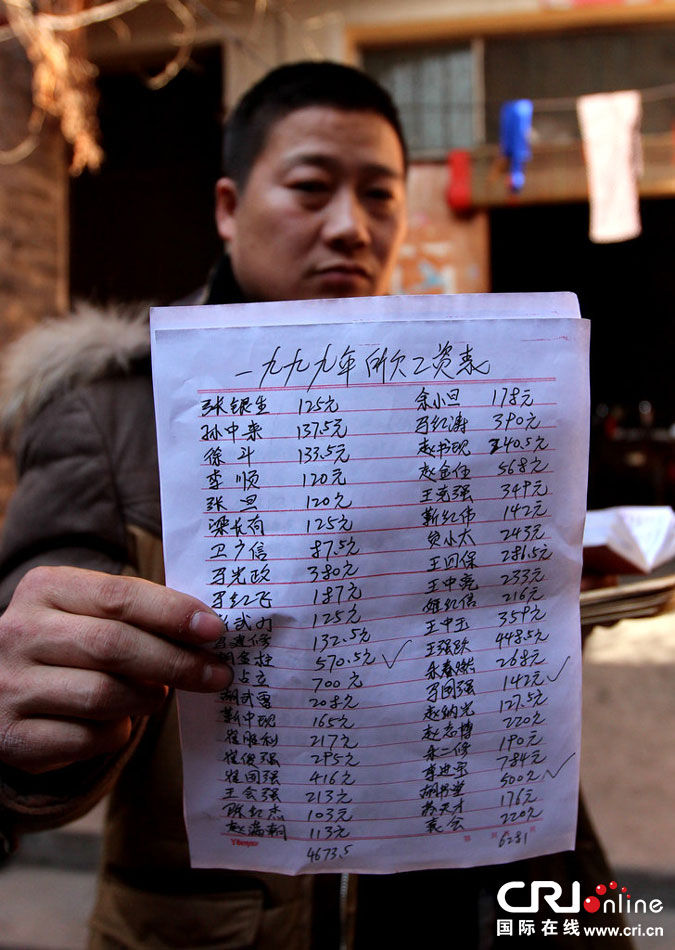 一九九九年所欠工资表
张银生 125元
孙中来 137.5元
徐斗 133.5元
李顺 120元
张旦 120元
梁长有 125元
卫广信 87.5元
光政 380元
红飞 187元
125元
建修 132.5元
570.5元
700元
胡武雷 208元
靳中现 165元
崔胜利 217元
崔俊强 295元
崔回强 416元
王会强 213元
陈红杰 103元
赵满朝 113元
4673.5
余小旦 178元
红涛 390元
赵书现 240.5元
赵金住 568元
王克强 349元
靳红伟 142元
负小太 243元
王回保 286.5元
王中亮 233元
红信 216元
王中玉 359元
王强跃 448.5元
春燃 268元
回强 142元
赵纳光 127.5元
赵志博 220元
二修 190元
李进宝 784元
胡书堂 500元
苏天才 176元
袁会 220元
6281
CRI online
国际在线 www.cri.cn